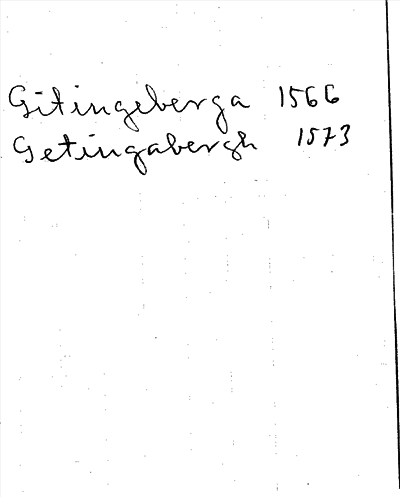 Gitingeberga 1566
Getingabergh 1573